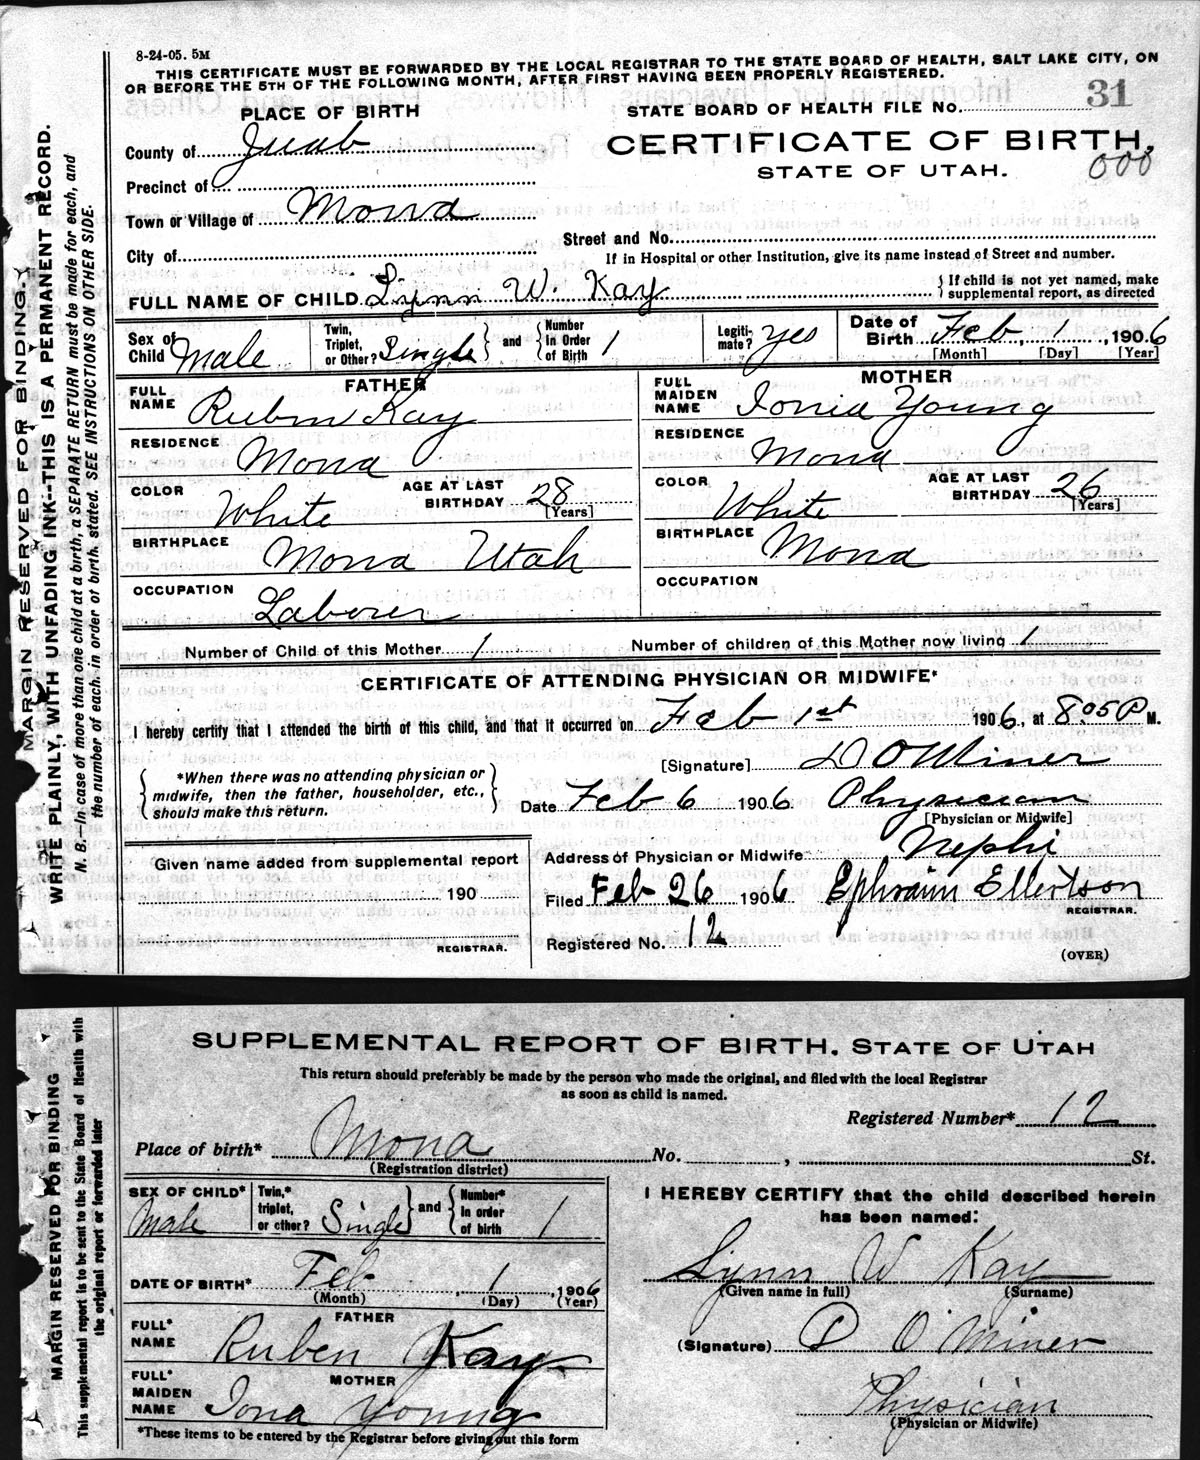 8-24-05. 5M
THIS CERTIFICATE MUST BE FORWARDED BY THE LOCAL REGISTRAR TO THE STATE BOARD OF HEALTH, SALT LAKE CITY, ON
OR BEFORE THE 5TH OF THE FOLLOWING MONTH, AFTER FIRST HAVING BEEN PROPERLY REGISTERED.
STATE BOARD OF HEALTH FILE No. 31
PLACE OF BIRTH
CERTIFICATE OF BIRTH,
STATE OF UTAH.
000
County of Juab
Precinct of
Town or Village of Mona
City of
Street and No.
If in Hospital or other Institution, give its name instead of Street and number.
FULL NAME OF CHILD Lynn W. Kay
If child is not yet named, make
supplemental report, as directed
Sex of Child Male
Twin, Triplet, or Other? Single and Number In Order of Birth 1
Legiti-mate? yes
Date of Birth Feb 1, 1906
[Month] [Day] [Year]
FATHER
FULL NAME Rubin Kay
RESIDENCE Mona
COLOR White
AGE AT LAST BIRTHDAY 28 [Years]
BIRTHPLACE Mona Utah
OCCUPATION Laborer
MOTHER
FULL MAIDEN NAME Ionia Young
RESIDENCE Mona
COLOR White
AGE AT LAST BIRTHDAY 26 [Years]
BIRTHPLACE Mona
OCCUPATION
Number of Child of this Mother 1 Number of children of this Mother now living 1
CERTIFICATE OF ATTENDING PHYSICIAN OR MIDWIFE*
I hereby certify that I attended the birth of this child, and that it occurred on Feb 1st 1906, at 8 05 P M.
*When there was no attending physician or
midwife, then the father, householder, etc.,
should make this return.
[Signature] D O Miner
Date Feb 6 1906 Physician
[Physician or Midwife]
Given name added from supplemental report
190
REGISTRAR.
Address of Physician or Midwife Nephi
Filed Feb 26 1906 Ephraim Ellertson
REGISTRAR.
Registered No. 12
(OVER)
MARGIN RESERVED FOR BINDING.
WRITE PLAINLY, WITH UNFADING INK--THIS IS A PERMANENT RECORD.
N. B.—In case of more than one child at a birth, a SEPARATE RETURN must be made for each, and
the number of each, in order of birth, stated. SEE INSTRUCTIONS ON OTHER SIDE.
SUPPLEMENTAL REPORT OF BIRTH. STATE OF UTAH
This return should preferably be made by the person who made the original, and filed with the local Registrar
as soon as child is named.
Registered Number* 12
Place of birth* Mona No. , St.
(Registration district)
SEX OF CHILD* Male
Twin,* triplet, or other? Single and Number* in order of birth 1
DATE OF BIRTH* Feb 1, 1906
(Month) (Day) (Year)
FATHER
FULL* NAME Ruben Kay
MOTHER
FULL* MAIDEN NAME Iona Young
*These items to be entered by the Registrar before giving out this form
I HEREBY CERTIFY that the child described herein
has been named:
Lynn W Kay
(Given name in full) (Surname)
(Signature) D O Miner
Physician
(Physician or Midwife)
MARGIN RESERVED FOR BINDING
This supplemental report is to be sent to the State Board of Health with
the original report or forwarded later